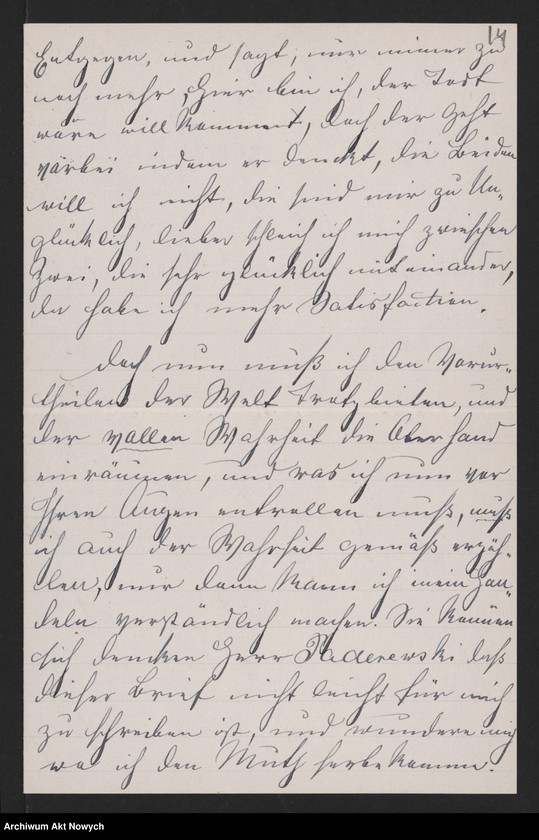 14
Entgegen, und sagt, nur immer zu
noch mehr, hier bin ich, der Todt
wäre willkommen, doch der geht
vorbei indem er denckt, die Beiden
will ich nicht, die sind mir zu Un-
glücklich, lieber schleich ich mich zwieschen
Zwei, die sehr glücklich miteinander,
da habe ich mehr Satisfaction.
Doch nun muß ich den Vorur-
theilen der Welt Trotz bieten, und
der vollen Wahrheit die Oberhand
einräumen, und was ich nun vor
Ihren Augen entrollen muß, muß
ich auch der Wahrheit gemäß erzäh-
len, nur dann kann ich mein Han-
deln verständlich machen. Sie können
sich dencken Herr Paderewski daß
dieser Brief nicht leicht für mich
zu schreiben ist, und wundere mich
wo ich den Muth herbekomme.
Archiwum Akt Nowych